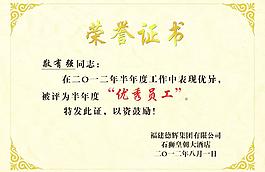 荣誉证书
敬有强同志：
在二〇一二年半年度工作中表现优异，
被评为半年度“优秀员工”。
特发此证，以资鼓励！
福建德辉集团有限公司
石狮皇朝大酒店
二〇一二年八月一日